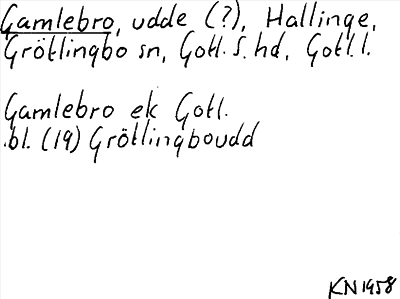 Gamlebro, udde (?), Hallinge,
Grötlingbo sn, Gotl. S. hd, Gotl. l.
Gamlebro ek Gotl.
bl. (19) Grötlingboudd
KN 1958